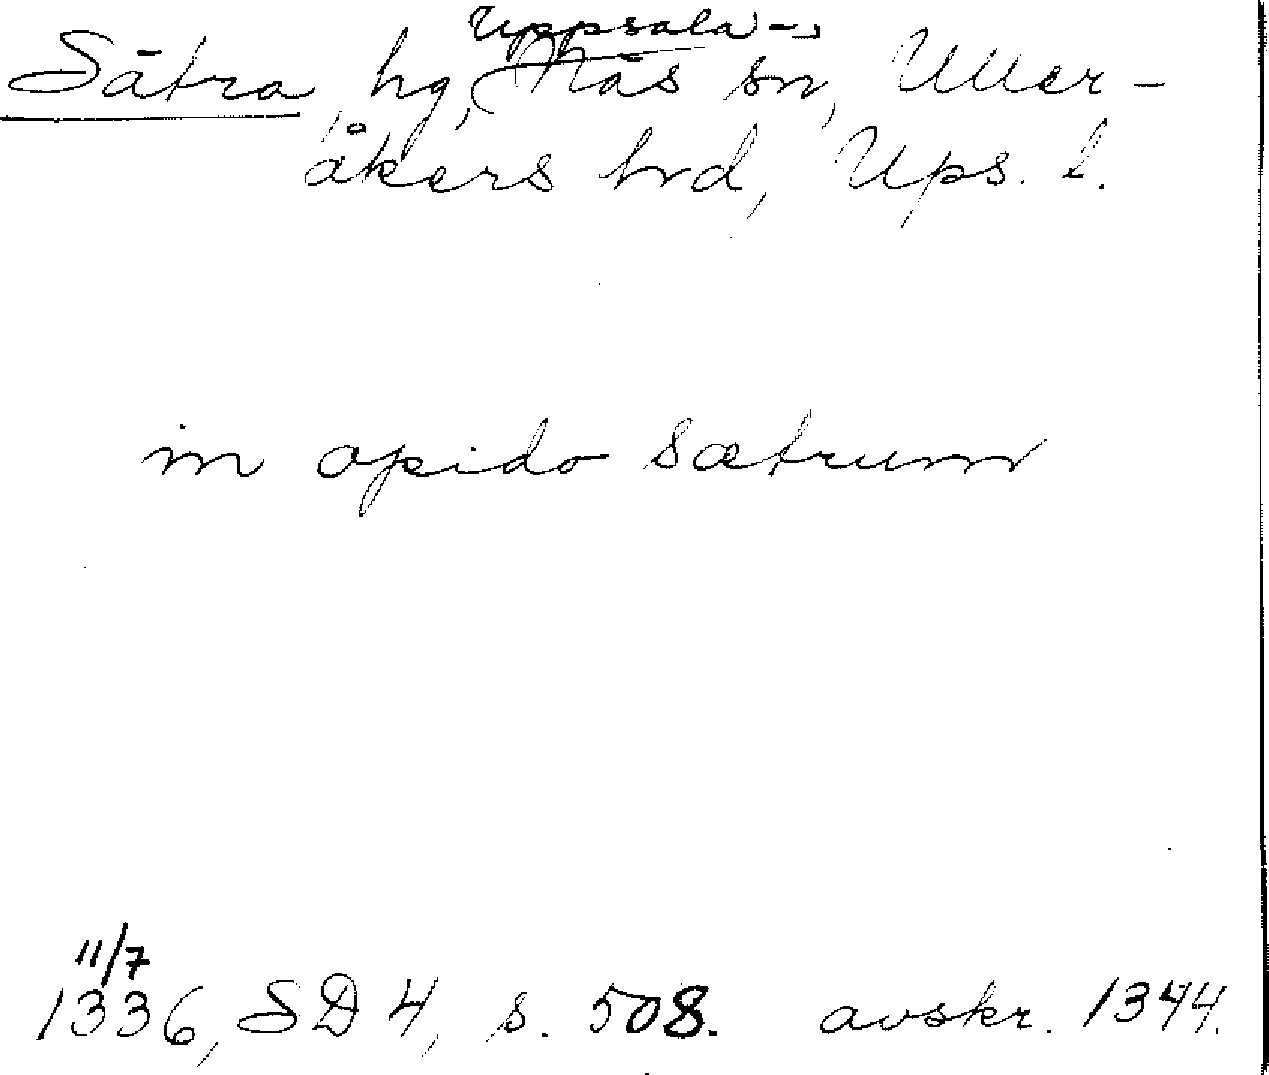 Uppsala-
Sätra, hg, Näs sn, Uller-
åkers hrd, Ups. l.
in opido Sætrum
11/7
1336, SD 4, s. 508. avskr. 1344.